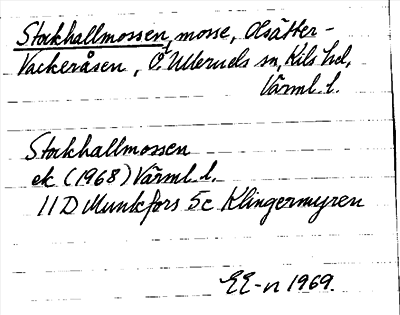 Stockhallmossen, mosse, Olsätter-
Vackeråsen, Ö. Ulleruds sn, Kils hd,
Värml. l.
Stockhallmossen
ek. (1968) Värml. l.
11D Munkfors 5c Klingermyren
EE-n 1969.